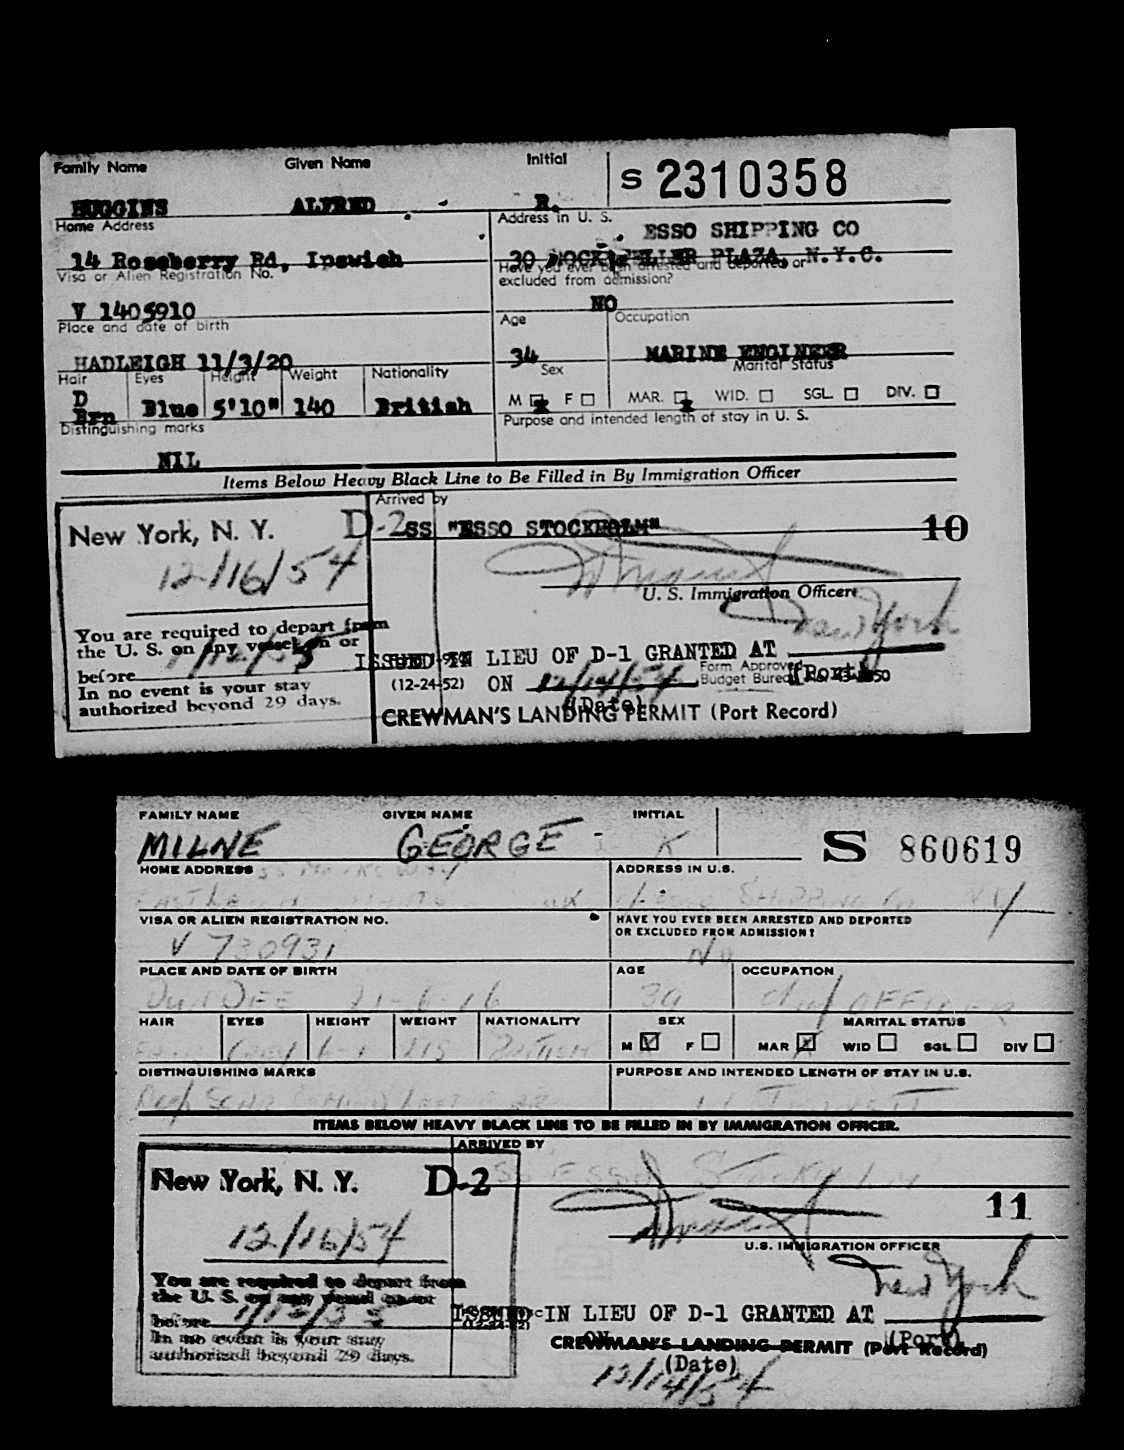 Family Name Given Name Initial S 2310358
HUGGINS ALFRED R.
Home Address Address in U. S. ESSO SHIPPING CO
14 Roseberry Rd, Ipswich 30 ROCKEFELLER PLAZA, N.Y.C.
Visa or Alien Registration No. Have you ever been arrested and deported or
excluded from admission?
V 1405910 NO
Place and date of birth Age Occupation
HADLEIGH 11/3/20 34 MARINE ENGINEER
Hair Eyes Height Weight Nationality Sex Marital Status
D
Brn Blue 5'10" 140 British M F MAR. WID. SGL. DIV.
Distinguishing marks Purpose and intended length of stay in U. S.
NIL
Items Below Heavy Black Line to Be Filled in By Immigration Officer
Arrived by
New York, N. Y. D-2 SS "ESSO STOCKHOLM" 10
12/16/54
U. S. Immigration Officer
You are required to depart from New York
the U. S. on any vessel on or
before 1/12/55 ISSUED IN LIEU OF D-1 GRANTED AT
In no event is your stay (12-24-52) ON 12/14/54 Form Approved (Port)
authorized beyond 29 days. Budget Bureau No.
(Date)
CREWMAN'S LANDING PERMIT (Port Record)
FAMILY NAME GIVEN NAME INITIAL S 860619
MILNE GEORGE K
HOME ADDRESS ADDRESS IN U.S.
SHIPPING Co NY
VISA OR ALIEN REGISTRATION NO. HAVE YOU EVER BEEN ARRESTED AND DEPORTED
OR EXCLUDED FROM ADMISSION?
V 730931 No
PLACE AND DATE OF BIRTH AGE OCCUPATION
DUNDEE 21-6-16 OFFICER
HAIR EYES HEIGHT WEIGHT NATIONALITY SEX MARITAL STATUS
Grey 6-1 215 BRITISH M F MAR WID SGL DIV
DISTINGUISHING MARKS PURPOSE AND INTENDED LENGTH OF STAY IN U.S.
ITEMS BELOW HEAVY BLACK LINE TO BE FILLED IN BY IMMIGRATION OFFICER.
ARRIVED BY
New York, N. Y. D-2 SS ESSO Stockholm 11
12/16/54
U.S. IMMIGRATION OFFICER
You are required to depart from New York
the U. S. on any vessel on or
before 1/12/55 ISSUED IN LIEU OF D-1 GRANTED AT
In no event is your stay ON (Port)
authorized beyond 29 days. CREWMAN'S LANDING PERMIT (Port Record)
(Date)
12/14/54